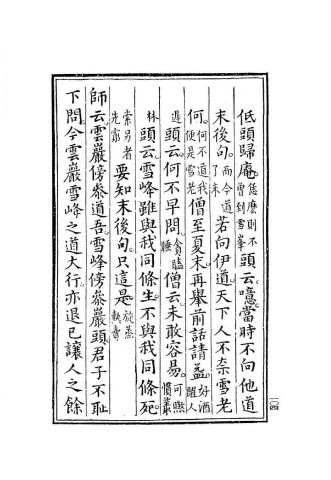 低頭歸庵。恁麼則不曾到雪峯頭云。噫當時不向他道
末後句。而今道了未若向伊道。天下人不奈雪老
何。何不道我便是雪老僧至夏末。再舉前話請益。好酒醒人
遲頭云。何不早問。貪瞌睡僧云。未敢容易。可煞慣叢
林頭云。雪峰雖與我同條生。不與我同條死。
索另者先窮要知末後句。只這是。旋蒸熱賣
師云。雲巖傍參道吾。雪峰傍參巖頭。君子不恥
下問。今雲巖雪峰之道大行。亦退已讓人之餘
一〇四